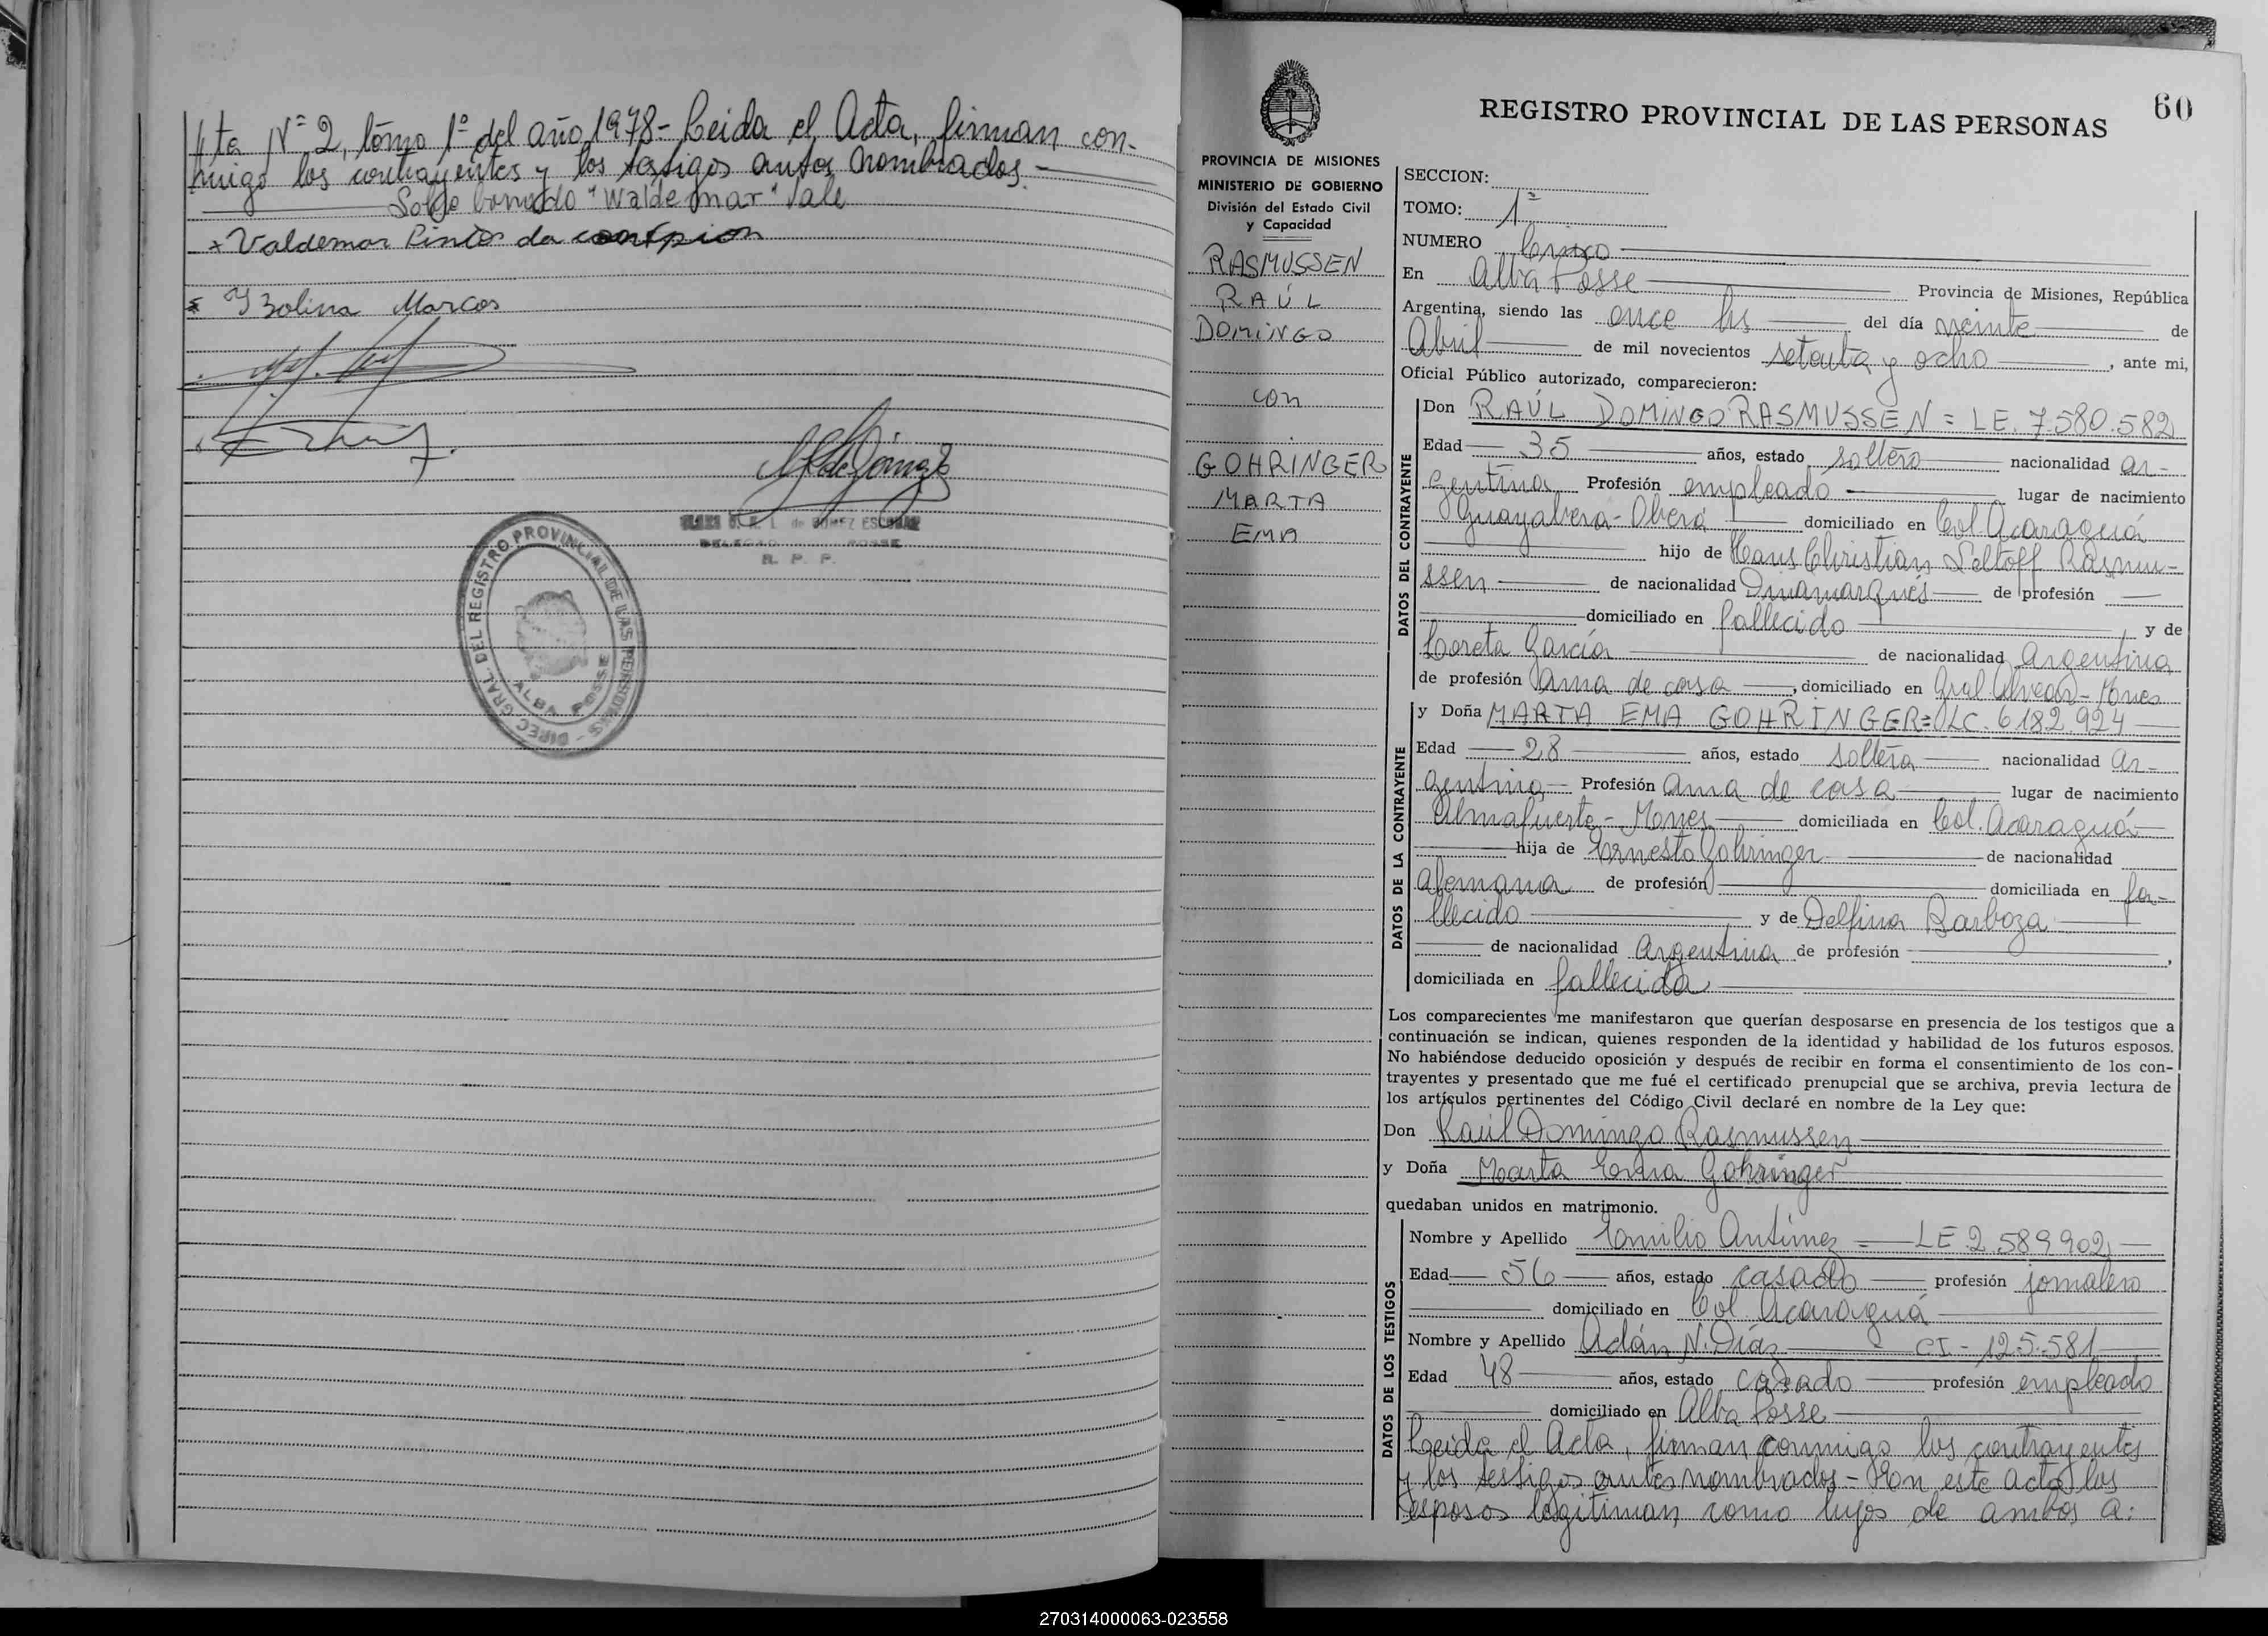 te Nº 2, tomo 1º del año 1978 - Leida el Acta, firman con-
migo los contrayentes y los testigos antes nombrados. -
Sobre borrado "Waldemar" Vale
x Valdemar Pintos da
x Yzolina Marcos
DIREC. GRAL. DEL REGISTRO PROVINCIAL DE LAS PERSONAS -
ALBA POSSE
de GOMEZ ESCOBAR
POSSE
R. P. P.
60
REGISTRO PROVINCIAL DE LAS PERSONAS
PROVINCIA DE MISIONES
MINISTERIO DE GOBIERNO
División del Estado Civil
y Capacidad
RASMUSSEN
RAÚL
DOMINGO
con
GOHRINGER
MARTA
EMA
SECCION:
TOMO: 1º
NUMERO Cinco
En Alba Posse Provincia de Misiones, República
Argentina, siendo las once hs del día veinte de
Abril de mil novecientos setenta y ocho , ante mi,
Oficial Público autorizado, comparecieron:
DATOS DEL CONTRAYENTE
Don RAÚL DOMINGO RASMUSSEN = LE. 7.580.582
Edad 35 años, estado soltero nacionalidad ar-
gentina Profesión empleado lugar de nacimiento
Guayabera - Oberá domiciliado en Col. Acaraguá
hijo de Hans Christian Seltoff Rasmu-
ssen de nacionalidad Dinamarqués de profesión
domiciliado en fallecido y de
Loreta García de nacionalidad Argentina
de profesión ama de casa , domiciliado en Gral Alvear - Mnes
DATOS DE LA CONTRAYENTE
y Doña MARTA EMA GOHRINGER = LC. 6.182.924
Edad 28 años, estado soltera nacionalidad Ar-
gentina Profesión ama de casa lugar de nacimiento
Almafuerte - Mnes domiciliada en Col. Acaraguá
hija de Ernesto Gohringer de nacionalidad
Alemana de profesión domiciliada en fa-
llecido y de Delfina Barboza
de nacionalidad Argentina de profesión ,
domiciliada en fallecida
Los comparecientes me manifestaron que querían desposarse en presencia de los testigos que a
continuación se indican, quienes responden de la identidad y habilidad de los futuros esposos.
No habiéndose deducido oposición y después de recibir en forma el consentimiento de los con-
trayentes y presentado que me fué el certificado prenupcial que se archiva, previa lectura de
los artículos pertinentes del Código Civil declaré en nombre de la Ley que:
Don Raúl Domingo Rasmussen
y Doña Marta Ema Gohringer
quedaban unidos en matrimonio.
DATOS DE LOS TESTIGOS
Nombre y Apellido Emilio Antúnez = LE 2.589902
Edad 56 años, estado casado profesión jornalero
domiciliado en Col Acaraguá
Nombre y Apellido Adán N. Díaz CI - 125.581
Edad 48 años, estado casado profesión empleado
domiciliado en Alba Posse
Leida el Acta, firman conmigo los contrayentes
y los testigos antes nombrados - En este acto los
esposos legitiman como hijos de ambos a:
270314000063-023558